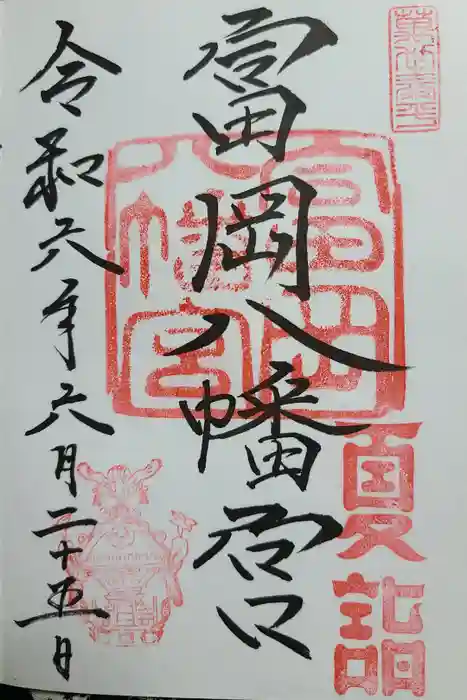 富岡八幡宮
夏詣
令和六年六月二十五日
富岡
八幡宮